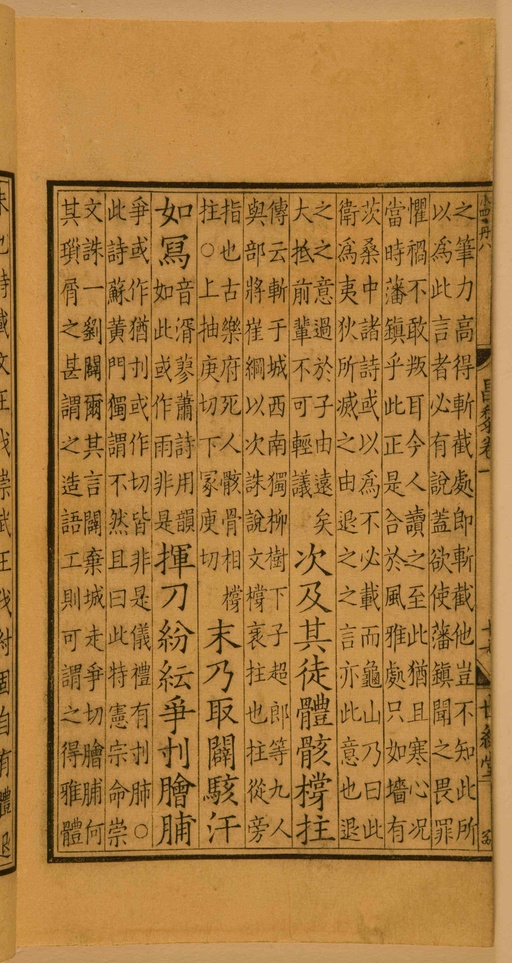 昌黎卷一
世綵堂
之筆力高得斬截處即斬截他豈不知此所
以爲此言者必有說蓋欲使藩鎮聞之畏罪
懼禍不敢叛耳今人讀之至此猶且寒心况
當時藩鎮乎此正是合於風雅處只如墻有
茨桑中諸詩或以爲不必載而龜山乃曰此
衛爲夷狄所滅之由退之之言亦此意也退
之之意過於子由遠矣
大抵前輩不可輕議
次及其徒體骸撐拄
傳云斬于城西南獨柳樹下子超郎等九人
與部將崔綱以次誅說文撐衺拄也拄從旁
指也古樂府死人骸骨相撐
拄○上抽庚切下冡庚切
末乃取闢駭汗
如寫
音湑蓼蕭詩用韻
如此或作雨非是
揮刀紛紜爭刌膾脯
爭或作猶刌或作切皆非是儀禮有刌肺○
此詩蘇黃門獨謂不然且曰此特憲宗命崇
文誅一劉闢爾其言闢棄城走爭切膾脯何
其瑣屑之甚謂之造語工則可謂之得雅體
未也詩載文王伐崇武王伐紂固自有體退